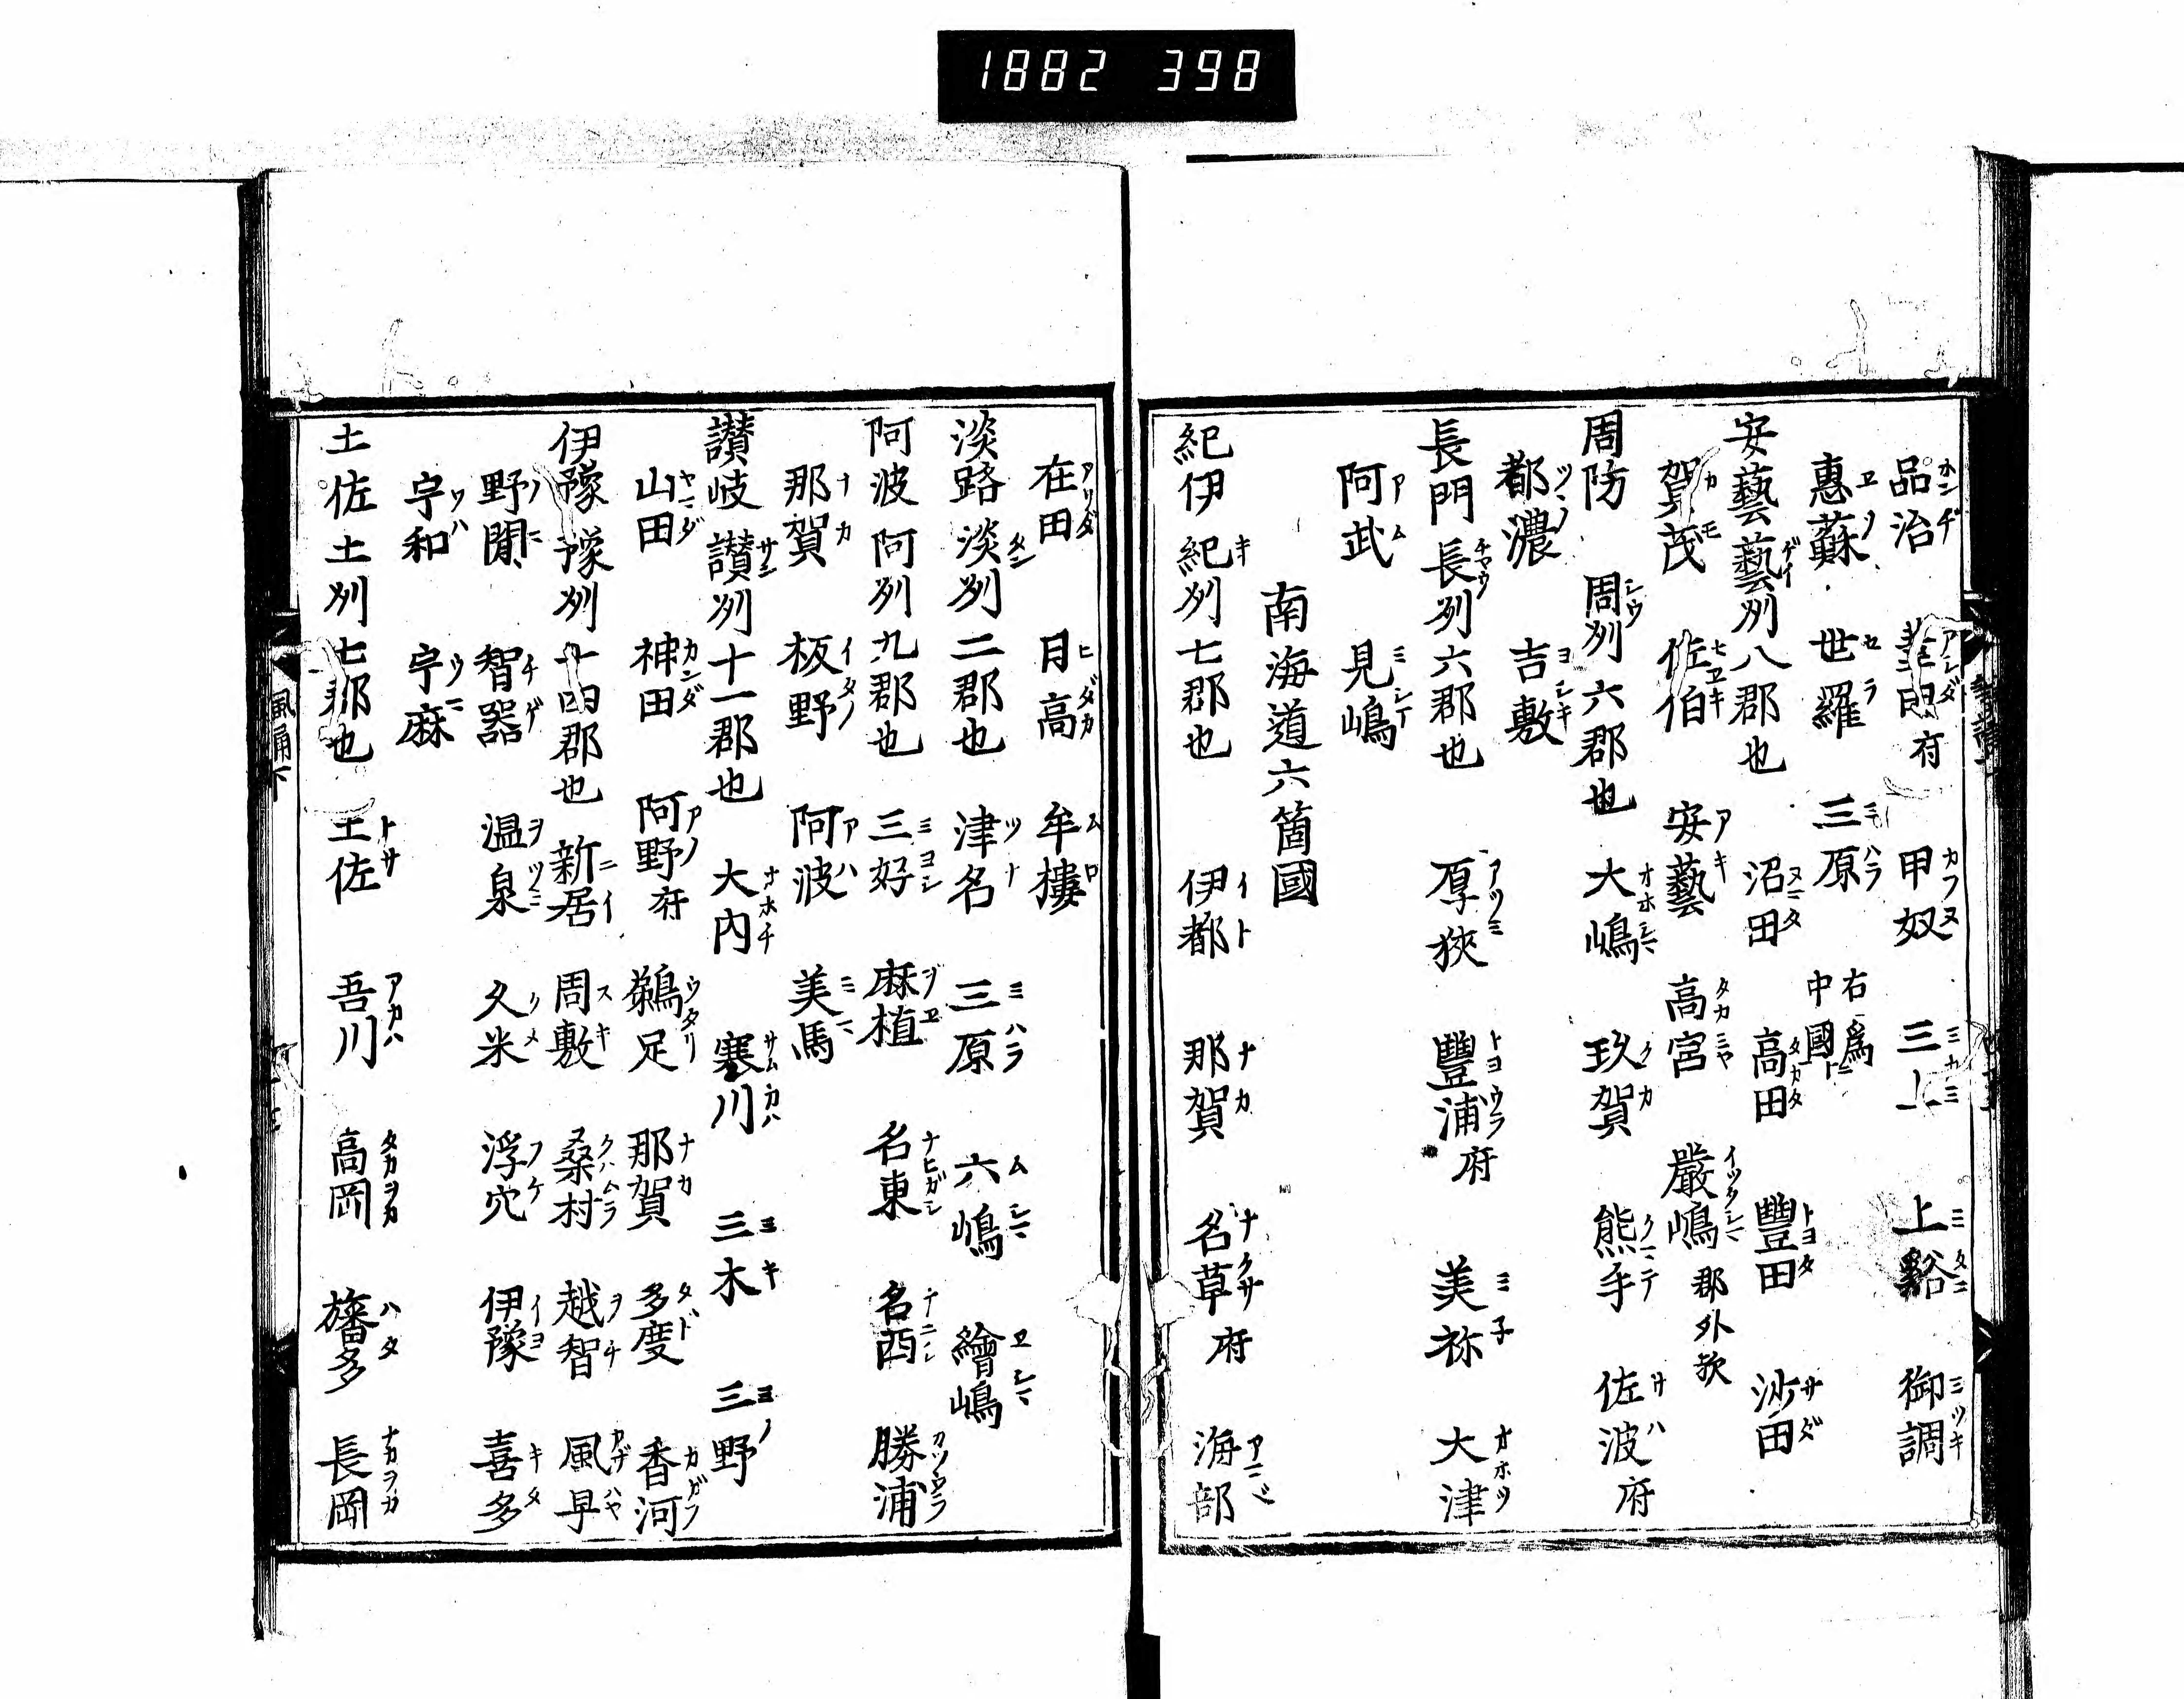 1882 398
品治 葦田府 甲奴 三上 上谿 御調
惠蘇 世羅 三原 右爲中國
安藝 藝州 八郡也 沼田 高田 豐田 沙田
賀茂 佐伯 安藝 高宮 嚴嶋 郡外歟
周防 周州 六郡也 大嶋 玖賀 熊手 佐波府
都濃 吉敷
長門 長州 六郡也 厚狹 豐浦府 美祢 大津
阿武 見嶋
南海道六箇國
紀伊 紀州 七郡也 伊都 那賀 名草府 海部
在田 日高 牟樓
淡路 淡州 二郡也 津名 三原 六嶋 繪嶋
阿波 阿州 九郡也 三好 麻植 名東 名西 勝浦
那賀 板野 阿波 美馬
讃岐 讃州 十一郡也 大内 寒川 三木 三野
山田 神田 阿野府 鵜足 那賀 多度 香河
伊豫 豫州 十四郡也 新居 周敷 桑村 越智 風早
野間 智器 温泉 久米 浮穴 伊豫 喜多
宇和 宇麻
土佐 土州 七郡也 土佐 吾川 高岡 旛多 長岡